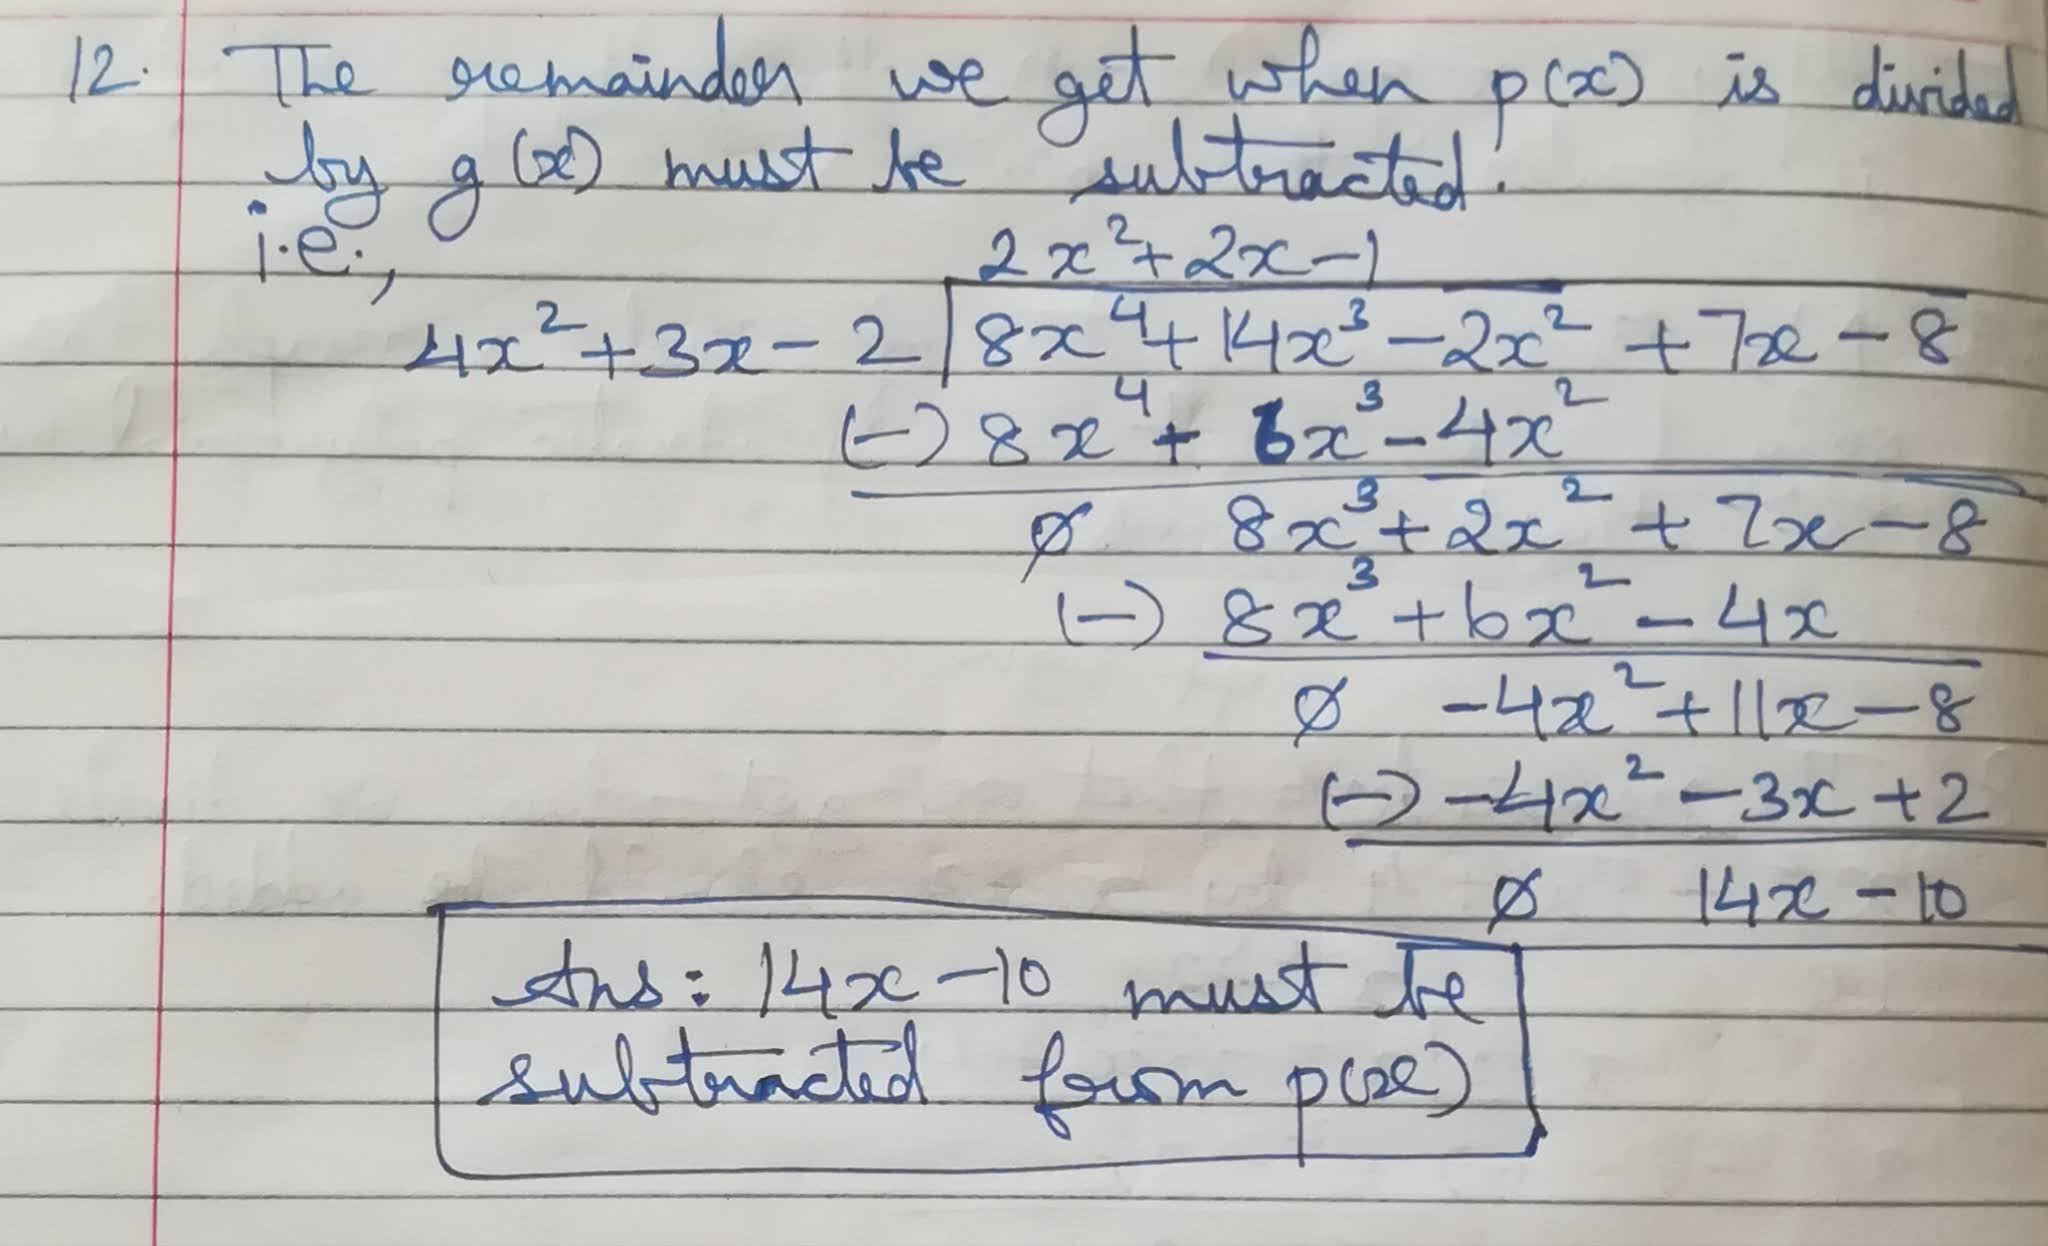 12. The remainder we get when p(x) is divided
by g(x) must be subtracted.
i.e.,
2x² + 2x - 1
4x² + 3x - 2 8x⁴ + 14x³ - 2x² + 7x - 8
(-) 8x⁴ + 6x³ - 4x²
0 8x³ + 2x² + 7x - 8
(-) 8x³ + 6x² - 4x
0 -4x² + 11x - 8
(-) -4x² - 3x + 2
0 14x - 10
Ans: 14x - 10 must be
subtracted from p(x)